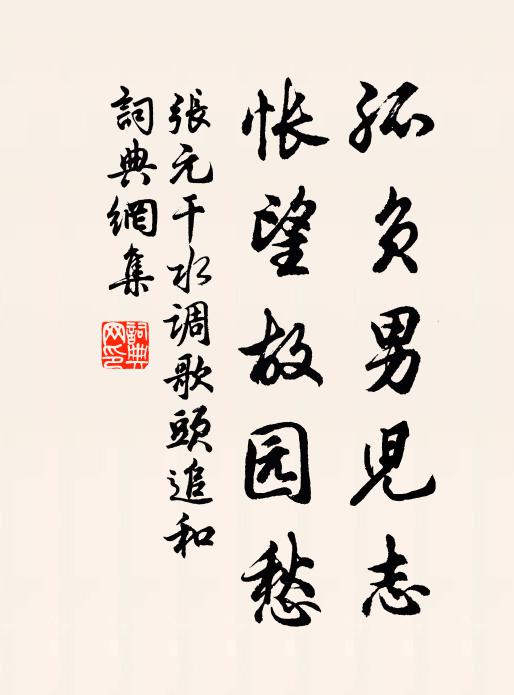 孤负男児志
怅望故园愁
張元干水调歌頭追和
詞典網集
詞典网印